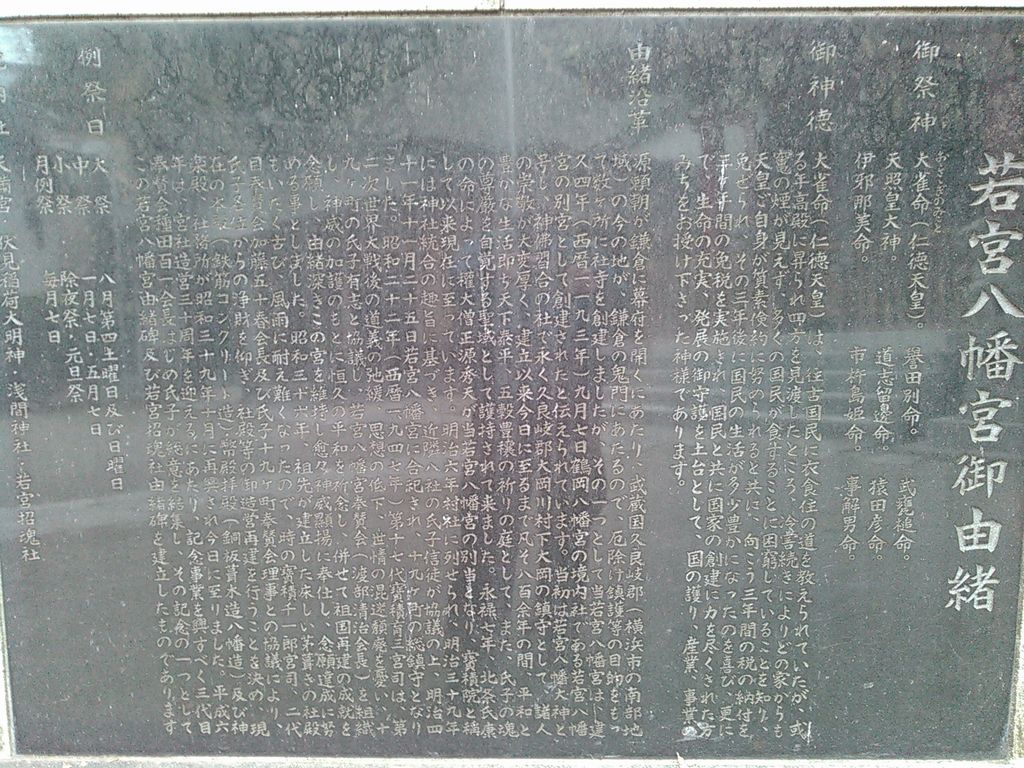 若宮八幡宮御由緒
御祭神
おおさざぎのみこと
大雀命(仁徳天皇)。 誉田別命。 武甕槌命。
天照皇大神。 道志留邊命。 猿田彦命。
伊邪那美命。 市杵島姫命。 事解男命。
御神徳
大雀命(仁徳天皇)は、往古国民に衣食住の道を教えられていたが、或
る年高殿に昇られ四方を見渡したところ、冷害続きによりどの家からも
竈の煙が見えず、多くの国民が食することに困窮していることを知り、
天皇ご自身が質素倹約に努められると共に、向こう三年間の税の納付を
免ぜられ、その三年後に国民の生活が多少豊かになったのを喜び、更に
年間の免税を実施され、国民と共に国家の創建に力を尽くされた方
で、生命の充実、発展の御守護を土台として、国の護り、産業、事業
みちをお授け下さった神様であります。
由緒沿革
源頼朝が鎌倉に幕府を開くにあたり、武蔵国久良岐郡(横浜市の南部地
域)の今の地が、鎌倉の鬼門にあたるので、厄除け鎮護等の目的をもっ
て数ヶ所に社寺を創建しましたが、その一つとして当若宮八幡宮は、建
久四年(西暦一一九三年)九月七日鶴岡八幡宮の境内社である若宮八幡
宮の別宮として創建されたと伝えられています。当初は若宮八幡大神と
号し、神佛習合の社で永く久良岐郡大岡川村下大岡の鎮守として、諸人
の崇敬が大変厚く、建立以来今日に至るまで凡そ八百余年の間、平和と
豊かな生活即ち天下泰平、五穀豊穣の祈りの庭として、また、氏子の魂
の尊厳を自覚する聖域として護持されて来ました。永禄七年、北条氏康
の命によって權大僧正源秀天が当若宮八幡宮の別当となり、寳積院と称
して以来現在に至っています。明治六年村社に列せられ、明治三十九年
には神社統合の趣旨に基づき、近隣八社の氏子信徒が協議の上、明治四
十一年十一月二十五日若宮八幡宮に合祀され、十九ヶ町の総鎮守となり
ました。昭和二十二年(西暦一九四七年)第十七代寳積育三宮司は、第
二次世界大戦後の道義の弛緩、思想の低下、世情の混迷頽廃を憂い、十
九ヶ町の氏子有志と協議し、若宮八幡宮奉賛会(渡部清治会長)を組織
し、神威の加護のもとに恒久の平和を祈念し、併せて祖国再建の成就を
念願し、由緒深きこの宮を維持し愈々神威顕揚に奉仕し、念願達成に努
める事としました。昭和三十六年、祖先が建立した床しい茅葺きの社殿
もいたく古び、風雨に耐え難くなったので、時の寳積千一郎宮司、二代
目奉賛会加藤五十春会長及び氏子十九ヶ町奉賛会理事との協議により、
氏子各位からの浄財を仰ぎ、社殿等の御造営再建を行うことを決め、現
在の本殿(鉄筋コンクリート造)幣殿拝殿(銅板葺木造八幡造)及び神
楽殿、社務所が昭和三十九年十月に再興され今日に至りました。平成六
年は、宮社造営三十周年を迎えるにあたり、記念事業を興すべく三代目
奉賛会種田百一会長はじめ氏子が総意を結集し、その記念の一つとして
この若宮八幡宮由緒碑及び若宮招魂社由緒碑を建立したものであります
例祭日
大祭 八月第四土曜日及び日曜日
中祭 一月七日・五月七日
小祭 除夜祭・元旦祭
月例祭 毎月七日
境内社 天満宮 伏見稲荷大明神・浅間神社・若宮招魂社